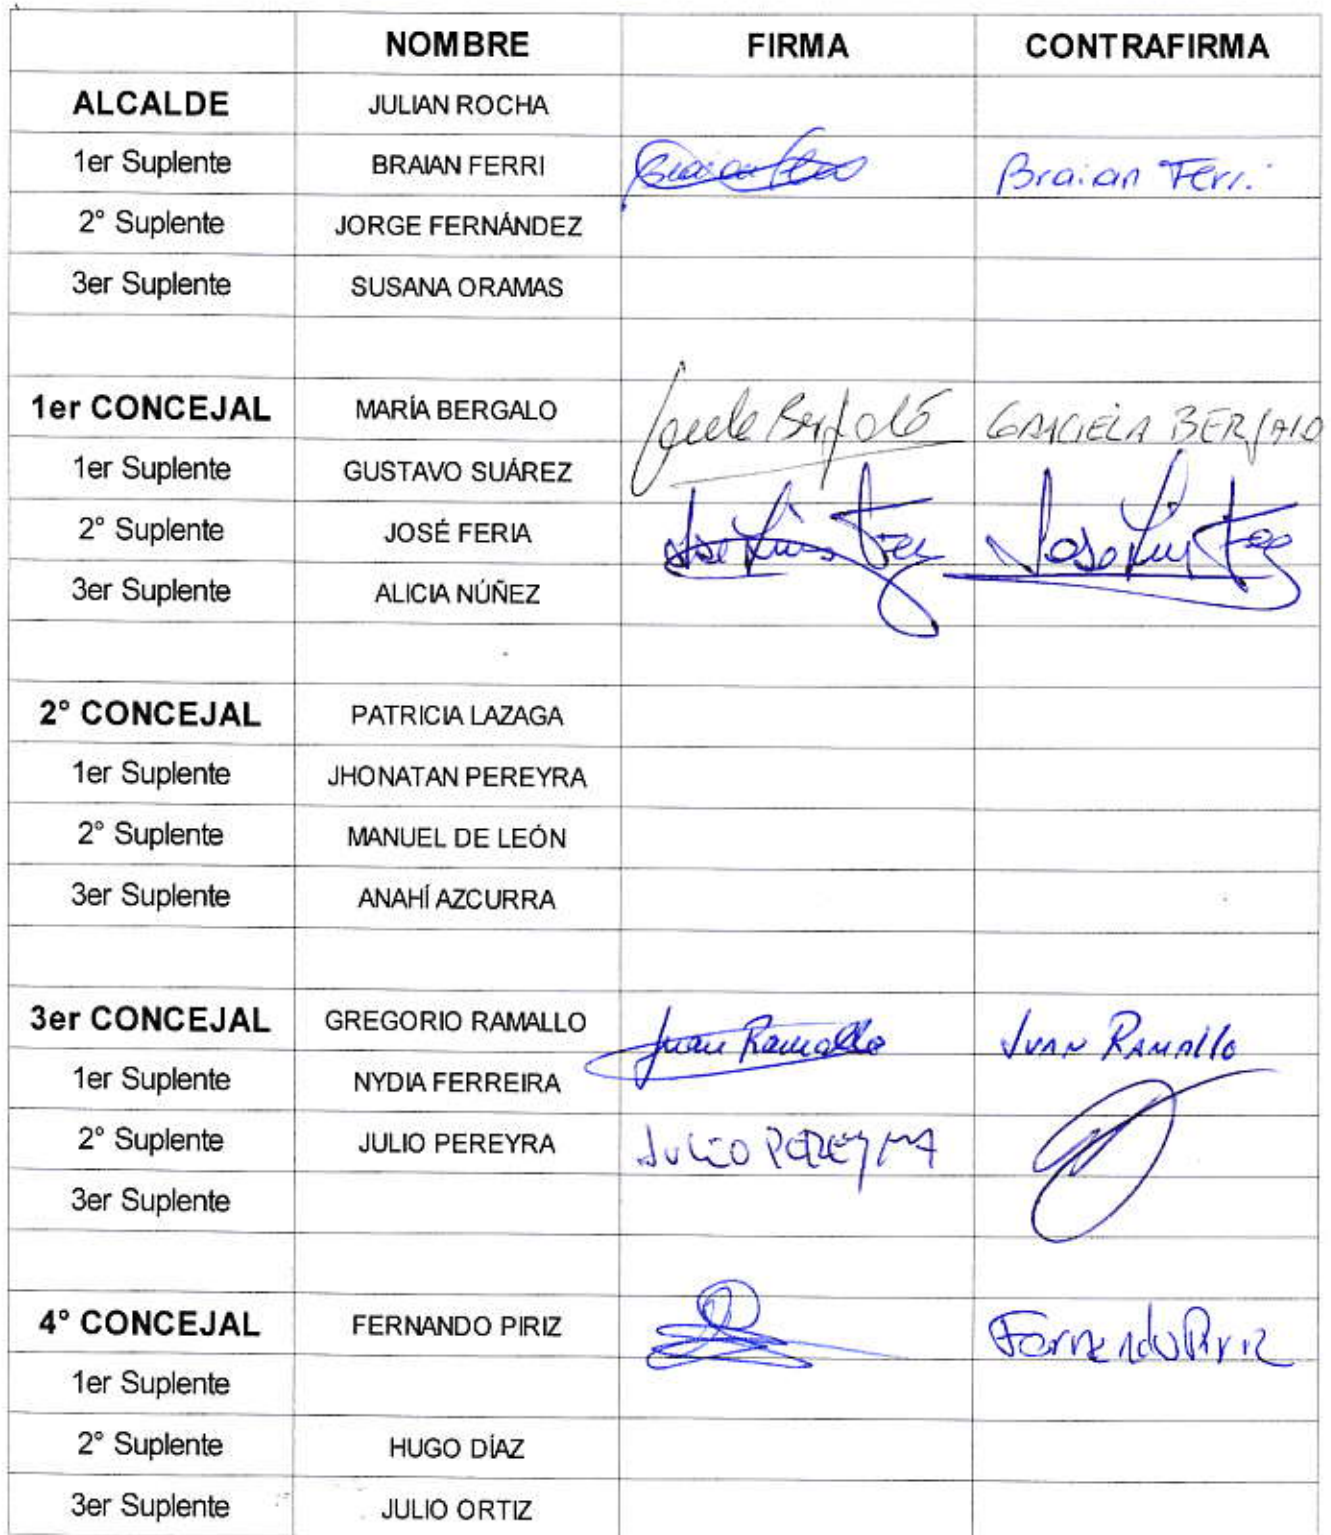 NOMBRE FIRMA CONTRAFIRMA
ALCALDE JULIAN ROCHA
1er Suplente BRAIAN FERRI Braian Ferri
2° Suplente JORGE FERNÁNDEZ
3er Suplente SUSANA ORAMAS
1er CONCEJAL MARÍA BERGALO GRACIELA BERGALO
1er Suplente GUSTAVO SUÁREZ
2° Suplente JOSÉ FERIA Jose Luis
3er Suplente ALICIA NÚÑEZ
2° CONCEJAL PATRICIA LAZAGA
1er Suplente JHONATAN PEREYRA
2° Suplente MANUEL DE LEÓN
3er Suplente ANAHÍ AZCURRA
3er CONCEJAL GREGORIO RAMALLO Juan Ramallo JUAN RAMALLO
1er Suplente NYDIA FERREIRA
2° Suplente JULIO PEREYRA JULIO PEREYRA
3er Suplente
4° CONCEJAL FERNANDO PIRIZ Fernando Piriz
1er Suplente
2° Suplente HUGO DÍAZ
3er Suplente JULIO ORTIZ